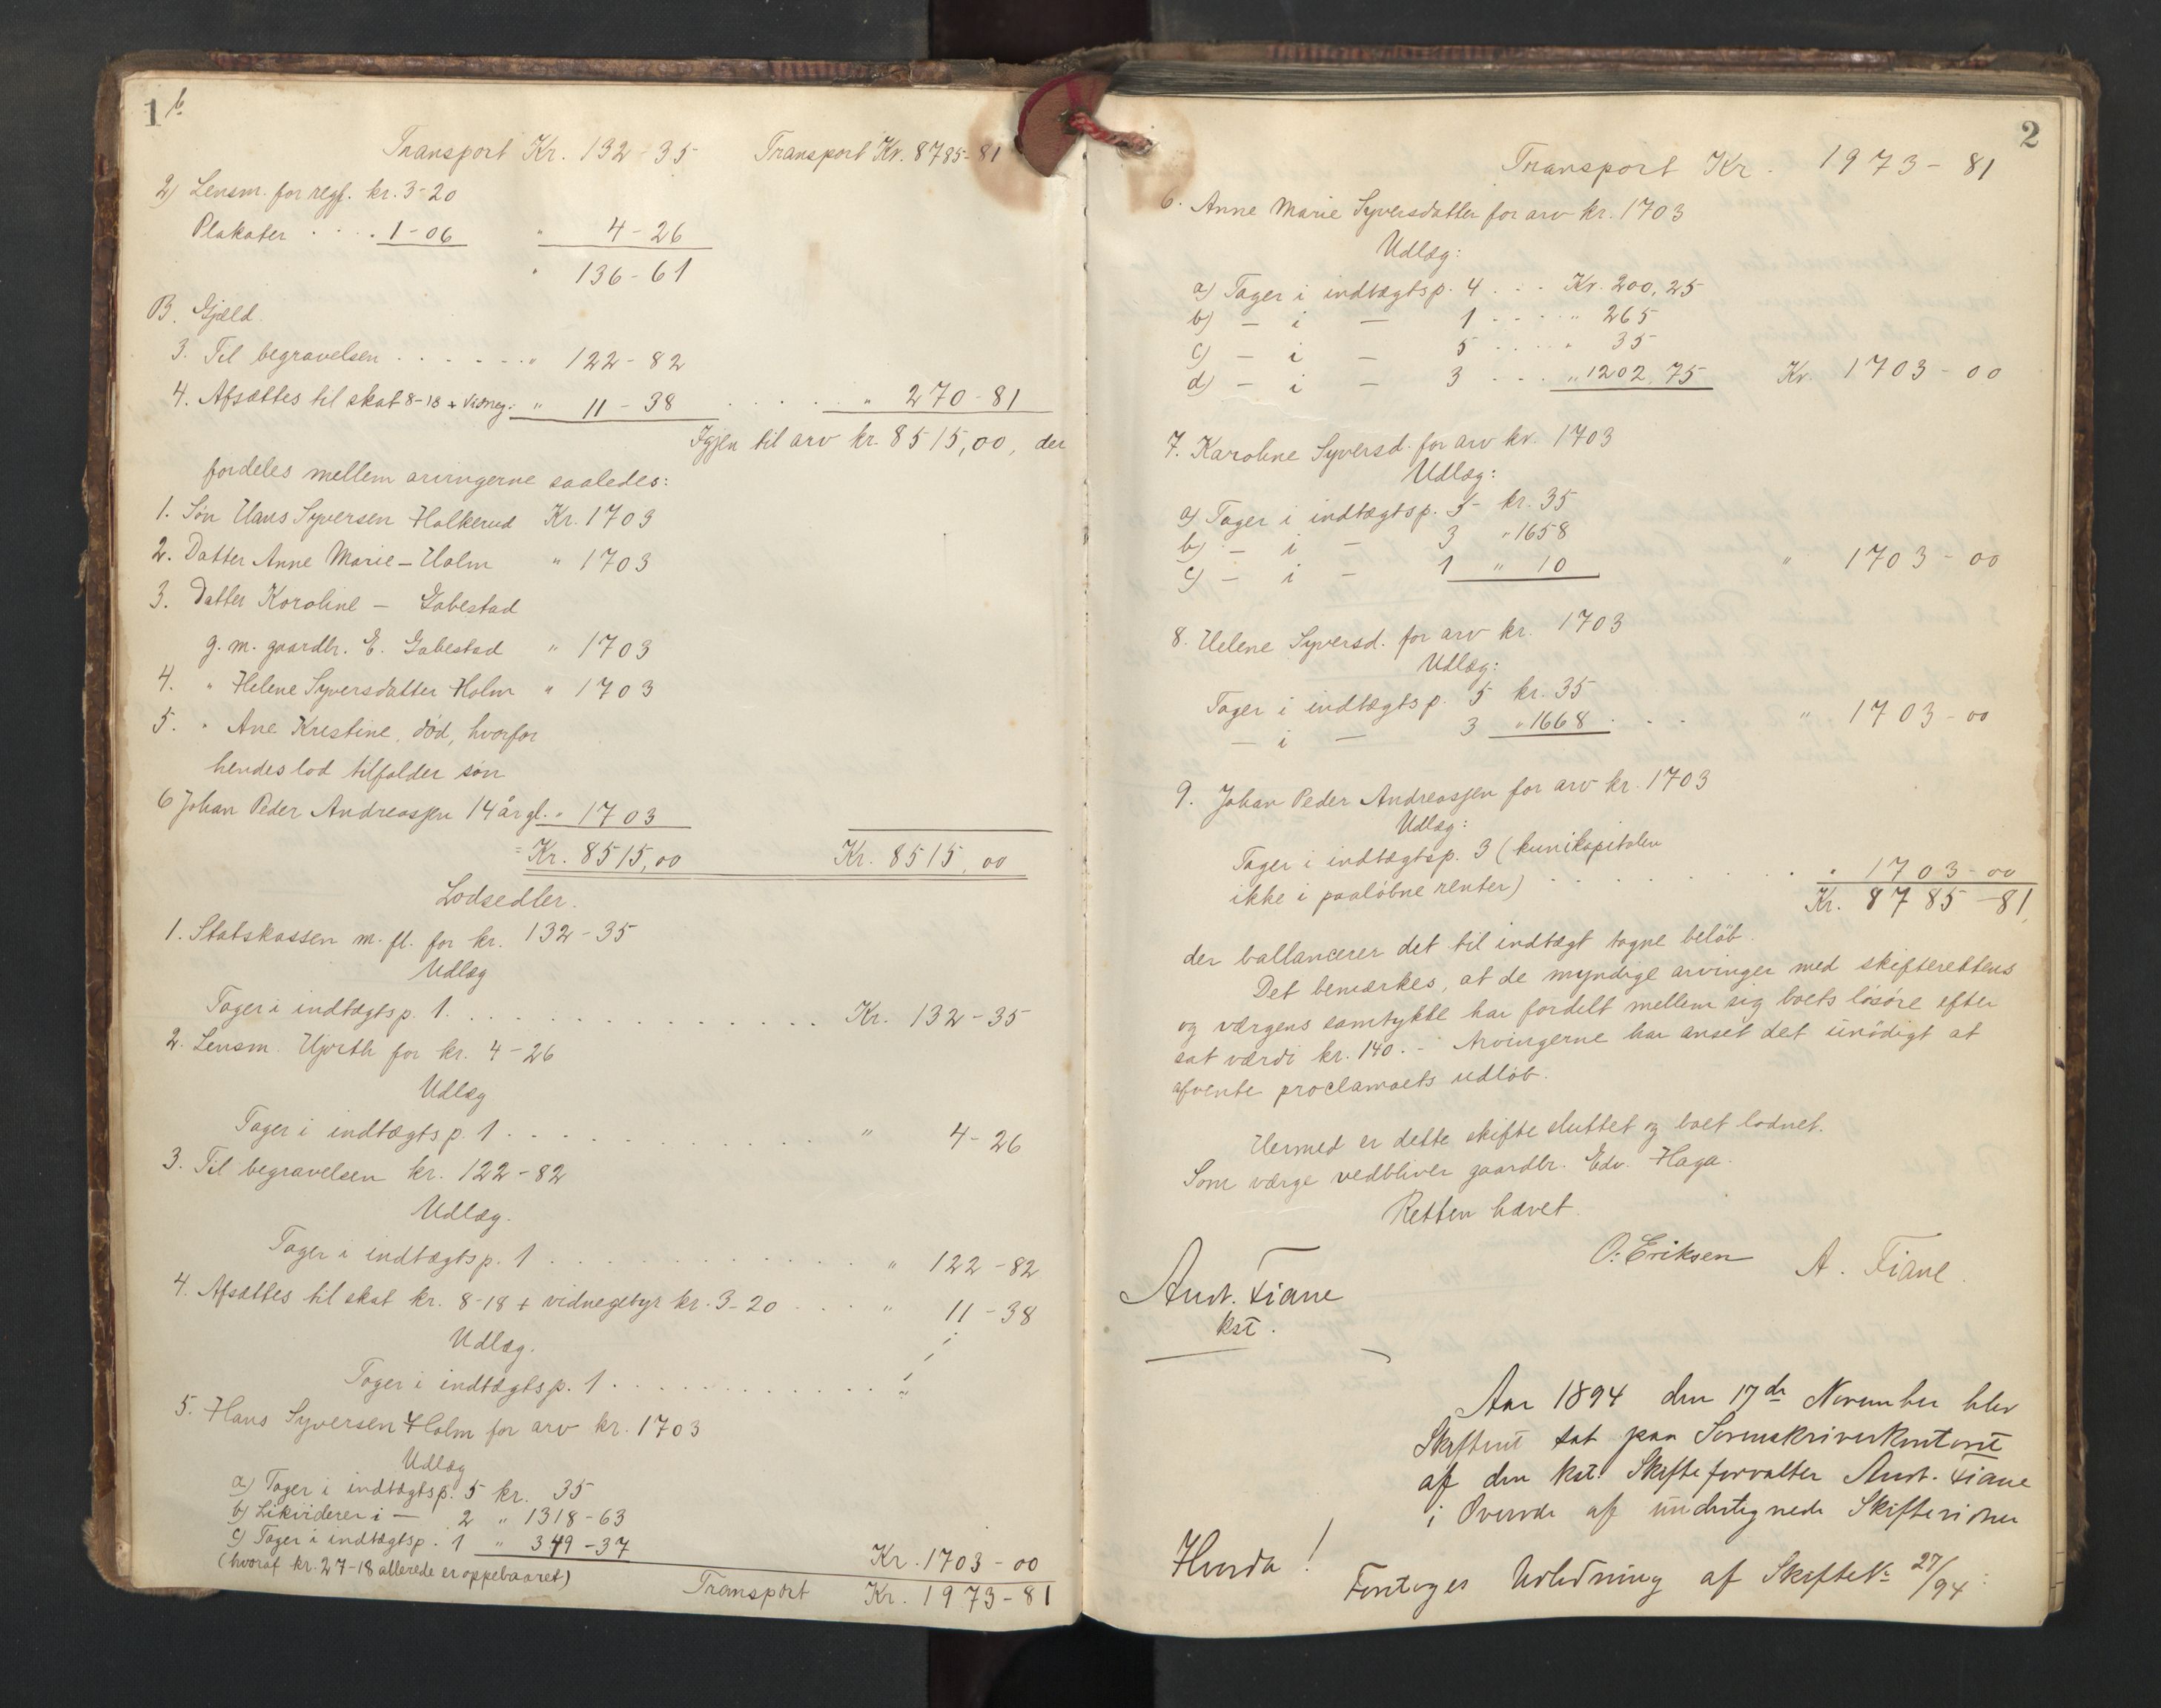 1b
Transport Kr. 132-35 Transport Kr. 8785-81
2) Lensm. for regf. kr. 3-20
Plakater . . . . 1-06 " 4-26
" 136-61
B. Gjæld.
3. Til begravelsen . . . . . . . " 122-82
4. Afsættes til skat 8-18 + vidneg. " 11-38 . . . . . " 270-81
Igjen til arv kr. 8515,00, der
fordeles mellem arvingerne saaledes:
1. Søn Hans Syversen Holkerud Kr. 1703
2. Datter Anne Marie - Holm " 1703
3. Datter Karoline - Gabestad
g. m. gaardbr. E. Gabestad " 1703
4. " Helene Syversdatter Holm " 1703
5. " Ane Kristine, død, hvorfor
hendes lod tilfalder søn
6 Johan Peder Andreassen 14 år gl. " 1703
Kr. 8515,00 Kr. 8515,00
Lodsedler.
1. Statskassen m. fl. for kr. 132-35
Udlæg
Tager i indtægtsp. 1. . . . . . . . . . . . . . . Kr. 132-35
2. Lensm. Hjorth for kr. 4-26
Udlæg
Tager i indtægtsp. 1 . . . . . . . . . . . . . " 4-26
3. Til begravelsen kr. 122-82
Udlæg.
Tager i indtægtsp. 1 . . . . . . . . . . . . . " 122-82
4. Afsættes til skat kr. 8-18 + vidnegebyr kr. 3-20 . . . . " 11-38
Udlæg.
Tager i indtægtsp. 1 . . . . . . . . . . . .
5. Hans Syversen Holm for arv kr. 1703
Udlæg
a) Tager i indtægtsp. 5 kr. 35
b) Likviderer i — 2 " 1318-63
c) Tager i indtægtsp. 1 " 349-37 Kr. 1703-00
(hvoraf kr. 27-18 allerede er oppebaaret)
Transport Kr. 1973-81
2
Transport Kr. 1973-81
6. Anne Marie Syversdatter for arv kr. 1703
Udlæg:
a) Tager i indtægtsp. 4 . . . Kr. 200,25
b) — i — 1 . . . . " 265
c) — i — 5 . . . . " 35
d) — i — 3 . . . " 1202,75 Kr. 1703-00
7. Karoline Syversd. for arv kr. 1703
Udlæg:
a) Tager i indtægtsp. 5 kr. 35
b) — i — 3 " 1658
c) — i — 1 " 10 " 1703-00
8. Helene Syversd. for arv kr. 1703
Udlæg:
Tager i indtægtsp. 5 kr. 35
— i — 3 " 1668 . . . " 1703-00
9. Johan Peder Andreassen for arv kr. 1703
Udlæg:
Tager i indtægtsp. 3 (kun i kapitalen
ikke i paaløbne renter) . . . . . . . . . " 1703-00
Kr. 8785-81,
der ballancerer det til indtægt tagne beløb.
Det bemærkes, at de myndige arvinger med skifterettens
og værgens samtykke har fordelt mellem sig boets løsøre efter
sat værdi kr. 140.- Arvingerne har anset det unødigt at
afvente proclamaets udløb.
Hermed er dette skifte sluttet og boet lodnet.
Som værge vedbliver gaardbr. Edv. Haga.
Retten hævet.
O. Eriksen A. Fiane.
Andr. Fiane
kst.
Aar 1894 den 17de November blev
Skifteret sat paa Sorenskriverkontoret
af den kst. Skifteforvalter Andr. Fiane
i Overvær af undertegnede Skiftevidner
Hvorda!
Foretoges Udlodning af Skifte No 27/94: